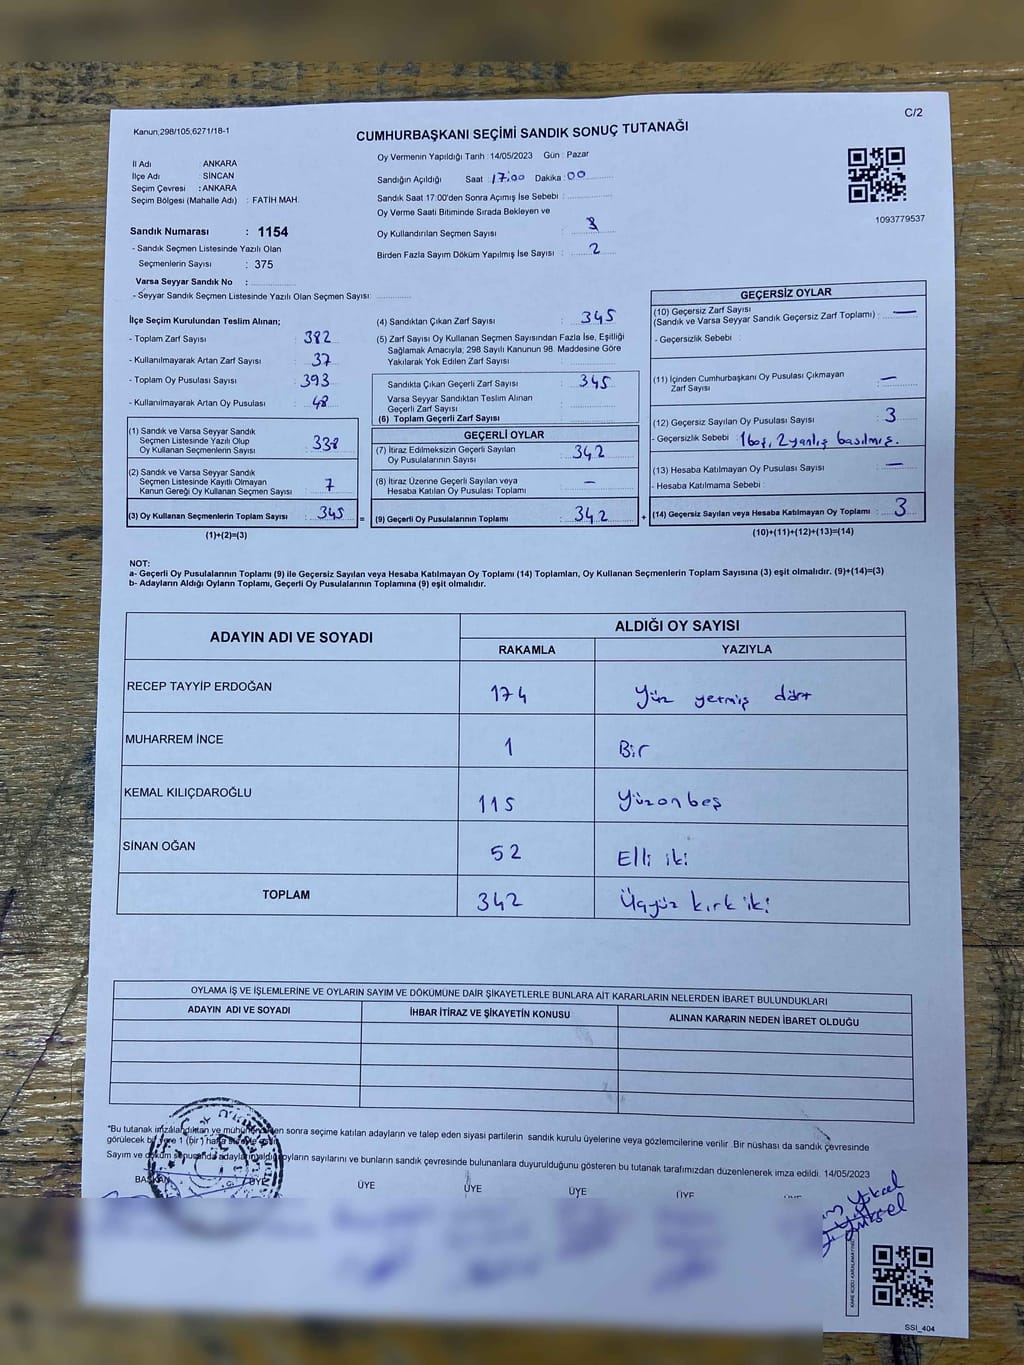 Kanun,298/105,6271/18-1
C/2
CUMHURBAŞKANI SEÇİMİ SANDIK SONUÇ TUTANAĞI
İl Adı : ANKARA
İlçe Adı : SİNCAN
Seçim Çevresi : ANKARA
Seçim Bölgesi (Mahalle Adı) : FATİH MAH.
Sandık Numarası : 1154
- Sandık Seçmen Listesinde Yazılı Olan
Seçmenlerin Sayısı : 375
Varsa Seyyar Sandık No :
- Seyyar Sandık Seçmen Listesinde Yazılı Olan Seçmen Sayısı:
Oy Vermenin Yapıldığı Tarih : 14/05/2023 Gün : Pazar
Sandığın Açıldığı Saat : 17:00 Dakika : 00
Sandık Saat 17:00'den Sonra Açımış İse Sebebi :
Oy Verme Saati Bitiminde Sırada Bekleyen ve
Oy Kullandırılan Seçmen Sayısı :
Birden Fazla Sayım Döküm Yapılmış İse Sayısı : 2
1093779537
İlçe Seçim Kurulundan Teslim Alınan;
- Toplam Zarf Sayısı : 382
- Kullanılmayarak Artan Zarf Sayısı : 37
- Toplam Oy Pusulası Sayısı : 393
- Kullanılmayarak Artan Oy Pusulası : 48
(1) Sandık ve Varsa Seyyar Sandık
Seçmen Listesinde Yazılı Olup
Oy Kullanan Seçmenlerin Sayısı : 338
(2) Sandık ve Varsa Seyyar Sandık
Seçmen Listesinde Kayıtlı Olmayan
Kanun Gereği Oy Kullanan Seçmen Sayısı : 7
(3) Oy Kullanan Seçmenlerin Toplam Sayısı : 345 =
(1)+(2)=(3)
(4) Sandıktan Çıkan Zarf Sayısı : 345
(5) Zarf Sayısı Oy Kullanan Seçmen Sayısından Fazla İse, Eşitliği
Sağlamak Amacıyla, 298 Sayılı Kanunun 98. Maddesine Göre
Yakılarak Yok Edilen Zarf Sayısı :
Sandıkta Çıkan Geçerli Zarf Sayısı : 345
Varsa Seyyar Sandıktan Teslim Alınan
Geçerli Zarf Sayısı :
(6) Toplam Geçerli Zarf Sayısı :
GEÇERLİ OYLAR
(7) İtiraz Edilmeksizin Geçerli Sayılan
Oy Pusulalarının Sayısı : 342
(8) İtiraz Üzerine Geçerli Sayılan veya
Hesaba Katılan Oy Pusulası Toplamı : -
(9) Geçerli Oy Pusulalarının Toplamı : 342 +
GEÇERSİZ OYLAR
(10) Geçersiz Zarf Sayısı
(Sandık ve Varsa Seyyar Sandık Geçersiz Zarf Toplamı) : -
- Geçersizlik Sebebi :
(11) İçinden Cumhurbaşkanı Oy Pusulası Çıkmayan
Zarf Sayısı : -
(12) Geçersiz Sayılan Oy Pusulası Sayısı : 3
- Geçersizlik Sebebi : 1 boş, 2 yanlış basılmış.
(13) Hesaba Katılmayan Oy Pusulası Sayısı : -
- Hesaba Katılmama Sebebi :
(14) Geçersiz Sayılan veya Hesaba Katılmayan Oy Toplamı : 3
(10)+(11)+(12)+(13)=(14)
NOT:
a- Geçerli Oy Pusulalarının Toplamı (9) ile Geçersiz Sayılan veya Hesaba Katılmayan Oy Toplamı (14) Toplamları, Oy Kullanan Seçmenlerin Toplam Sayısına (3) eşit olmalıdır. (9)+(14)=(3)
b- Adayların Aldığı Oyların Toplamı, Geçerli Oy Pusulalarının Toplamına (9) eşit olmalıdır.
ADAYIN ADI VE SOYADI
ALDIĞI OY SAYISI
RAKAMLA YAZIYLA
RECEP TAYYİP ERDOĞAN 174 Yüz yetmiş dört
MUHARREM İNCE 1 Bir
KEMAL KILIÇDAROĞLU 115 Yüzonbeş
SİNAN OĞAN 52 Elli iki
TOPLAM 342 Üçyüz kırk iki
OYLAMA İŞ VE İŞLEMLERİNE VE OYLARIN SAYIM VE DÖKÜMÜNE DAİR ŞİKAYETLERLE BUNLARA AİT KARARLARIN NELERDEN İBARET BULUNDUKLARI
ADAYIN ADI VE SOYADI İHBAR İTİRAZ VE ŞİKAYETİN KONUSU ALINAN KARARIN NEDEN İBARET OLDUĞU
"Bu tutanak imzalandıktan ve mühürlendikten sonra seçime katılan adayların ve talep eden siyasi partilerin sandık kurulu üyelerine veya gözlemcilerine verilir .Bir nüshası da sandık çevresinde
görülecek bir yere 1 (bir ) hafta
Sayım ve döküm sonucunda adayların aldığı oyların sayılarını ve bunların sandık çevresinde bulunanlara duyurulduğunu gösteren bu tutanak tarafımızdan düzenlenerek imza edildi. 14/05/2023
BAŞKAN ÜYE ÜYE ÜYE ÜYE ÜYE
Yüksel
Yüksel
SSI_404